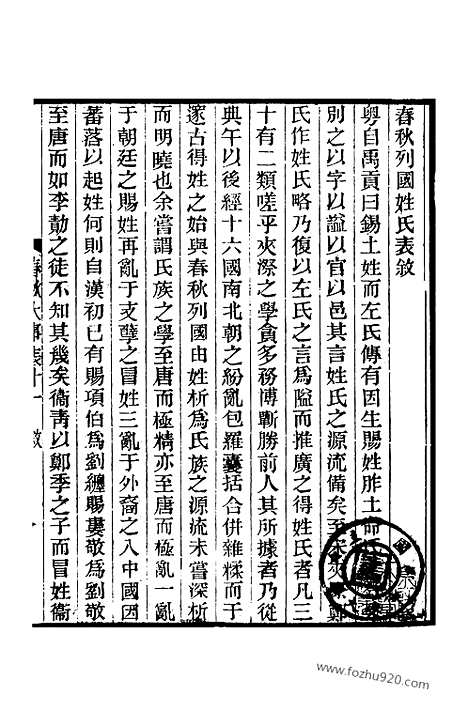 春秋列國姓氏表敘
粵自禹貢曰錫土姓而左氏傳有因生賜姓胙土命氏
別之以字以謚以官以邑其言姓氏之源流備矣至宋夾鄭
氏作姓氏略乃復以左氏之言爲隘而推廣之得姓氏者凡三
十有二類嗟乎夾漈之學貪多務博斬勝前人其所據者乃從
典午以後經十六國南北朝之紛亂包羅囊括合併雜糅而于
邃古得姓之始與春秋列國由姓析爲氏族之源流未嘗深析
而明曉也余嘗謂氏族之學至唐而極精亦至唐而極亂一亂
于朝廷之賜姓再亂于支孽之冒姓三亂于外裔之入中國因
蕃落以起姓何則自漢初已有賜項伯爲劉纏賜婁敬爲劉敬
至唐而如李勣之徒不知其幾矣衞靑以鄭季之子而冒姓衞
春秋大事表十一 敘
www.fozhu920.com